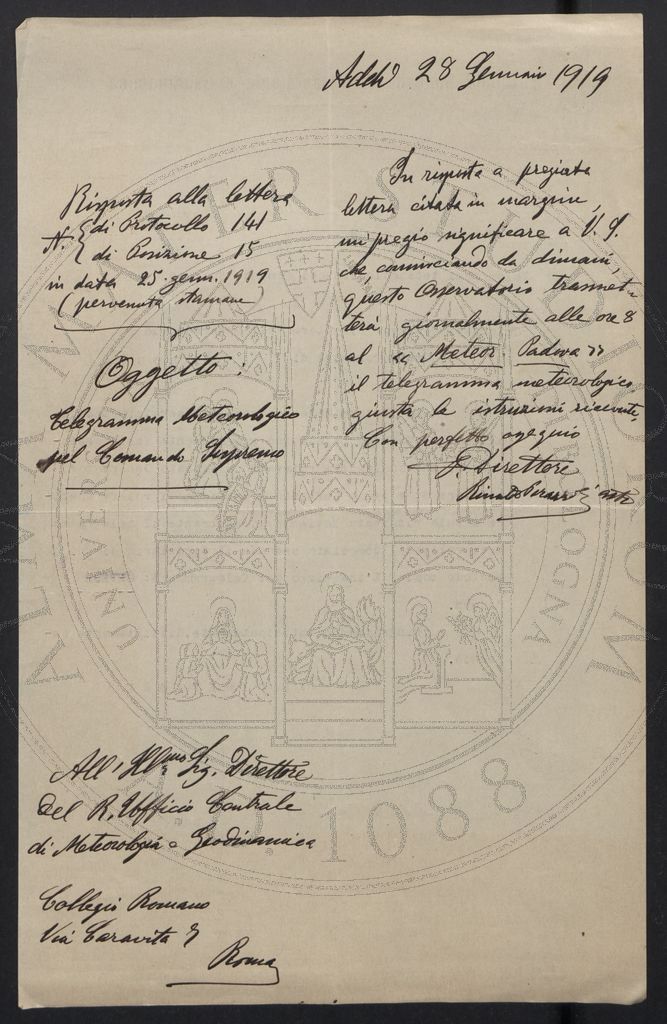 Addì 28 Gennaio 1919
Risposta alla lettera
N. { di Protocollo 141
di Posizione 15
in data 25 genn. 1919
(pervenuta stamane)
Oggetto:
Telegramma Meteorologico
pel Comando Supremo
In risposta a pregiata
lettera citata in margine,
mi pregio significare a V. S.
che, cominciando da dimani,
questo Osservatorio trasmet-
terà giornalmente alle ore 8
al « Meteor. Padova »
il telegramma meteorologico,
giusta le istruzioni ricevute.
Con perfetto ossequio
Il Direttore
All' Ill.mo Sig. Direttore
Del R. Ufficio Centrale
di Meteorologia e Geodinamica
Collegio Romano
Via Caravita 7
Roma
ALMA MATER STUDIORUM
UNIVERSITÀ DI BOLOGNA
A.D. 1088